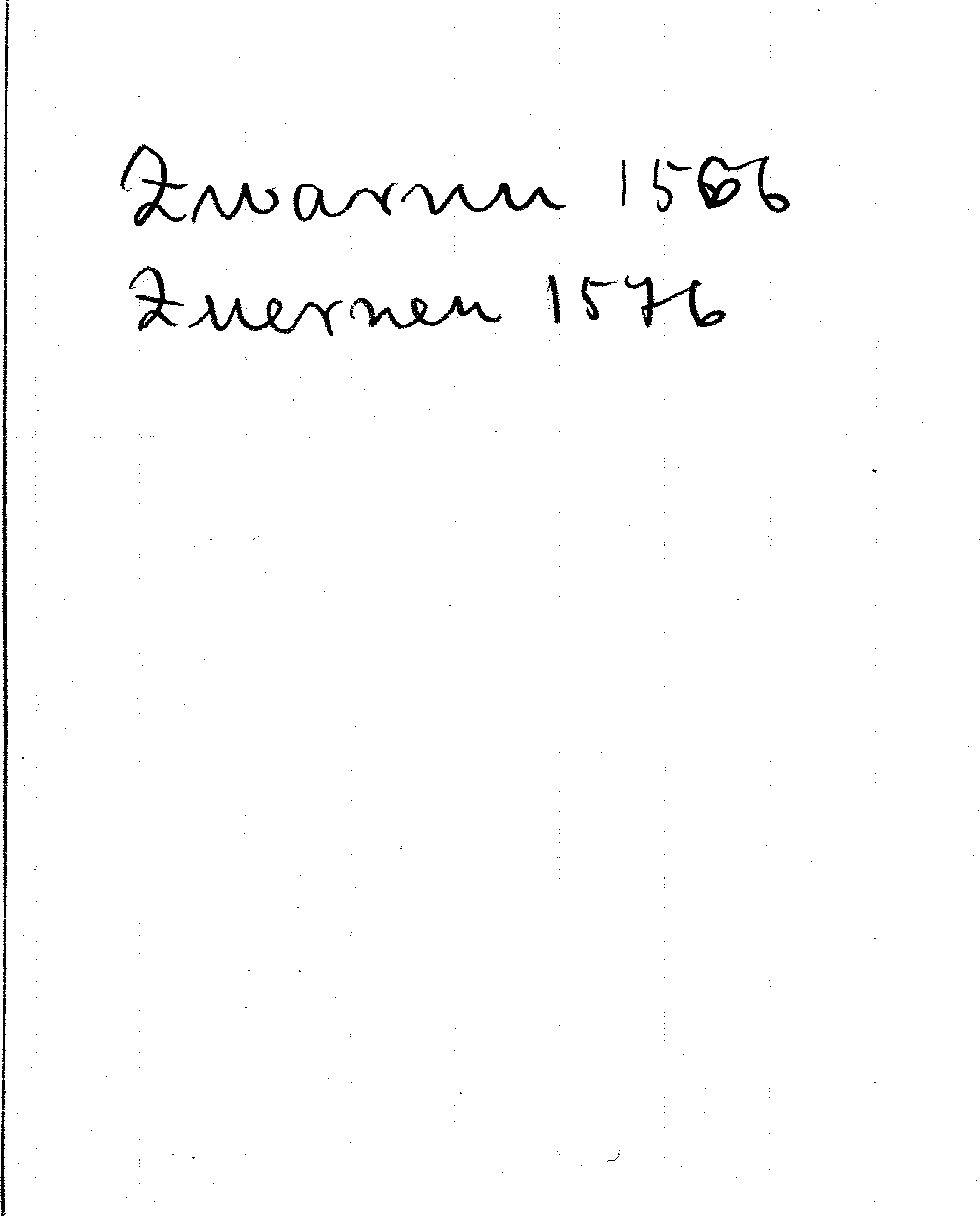 Zwarnen 1566
Zuernen 1576